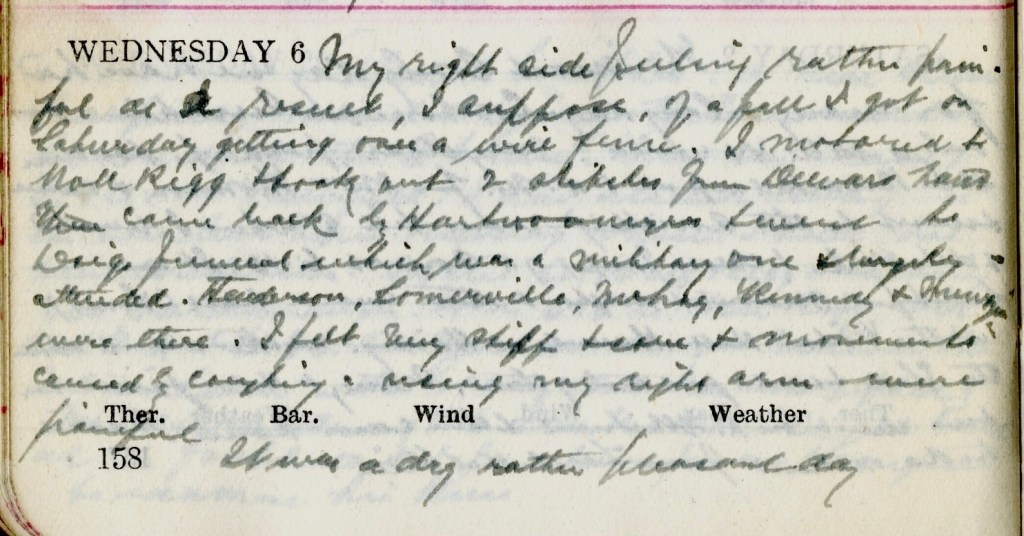 WEDNESDAY 6 My right side feeling rather pain-
ful as a result, I suppose, of a fall I got on
Saturday getting over a wire fence. I motored to
Rigg & took out 2 stitches from hand
came back by & went to
Doigs funeral which was a military one & largely
attended. Henderson, Somerville, Kennedy &
were there. I felt very stiff & sore & movements
caused by coughing & using my right arm were
Ther. Bar. Wind Weather
painful
158 It was a dry rather pleasant day